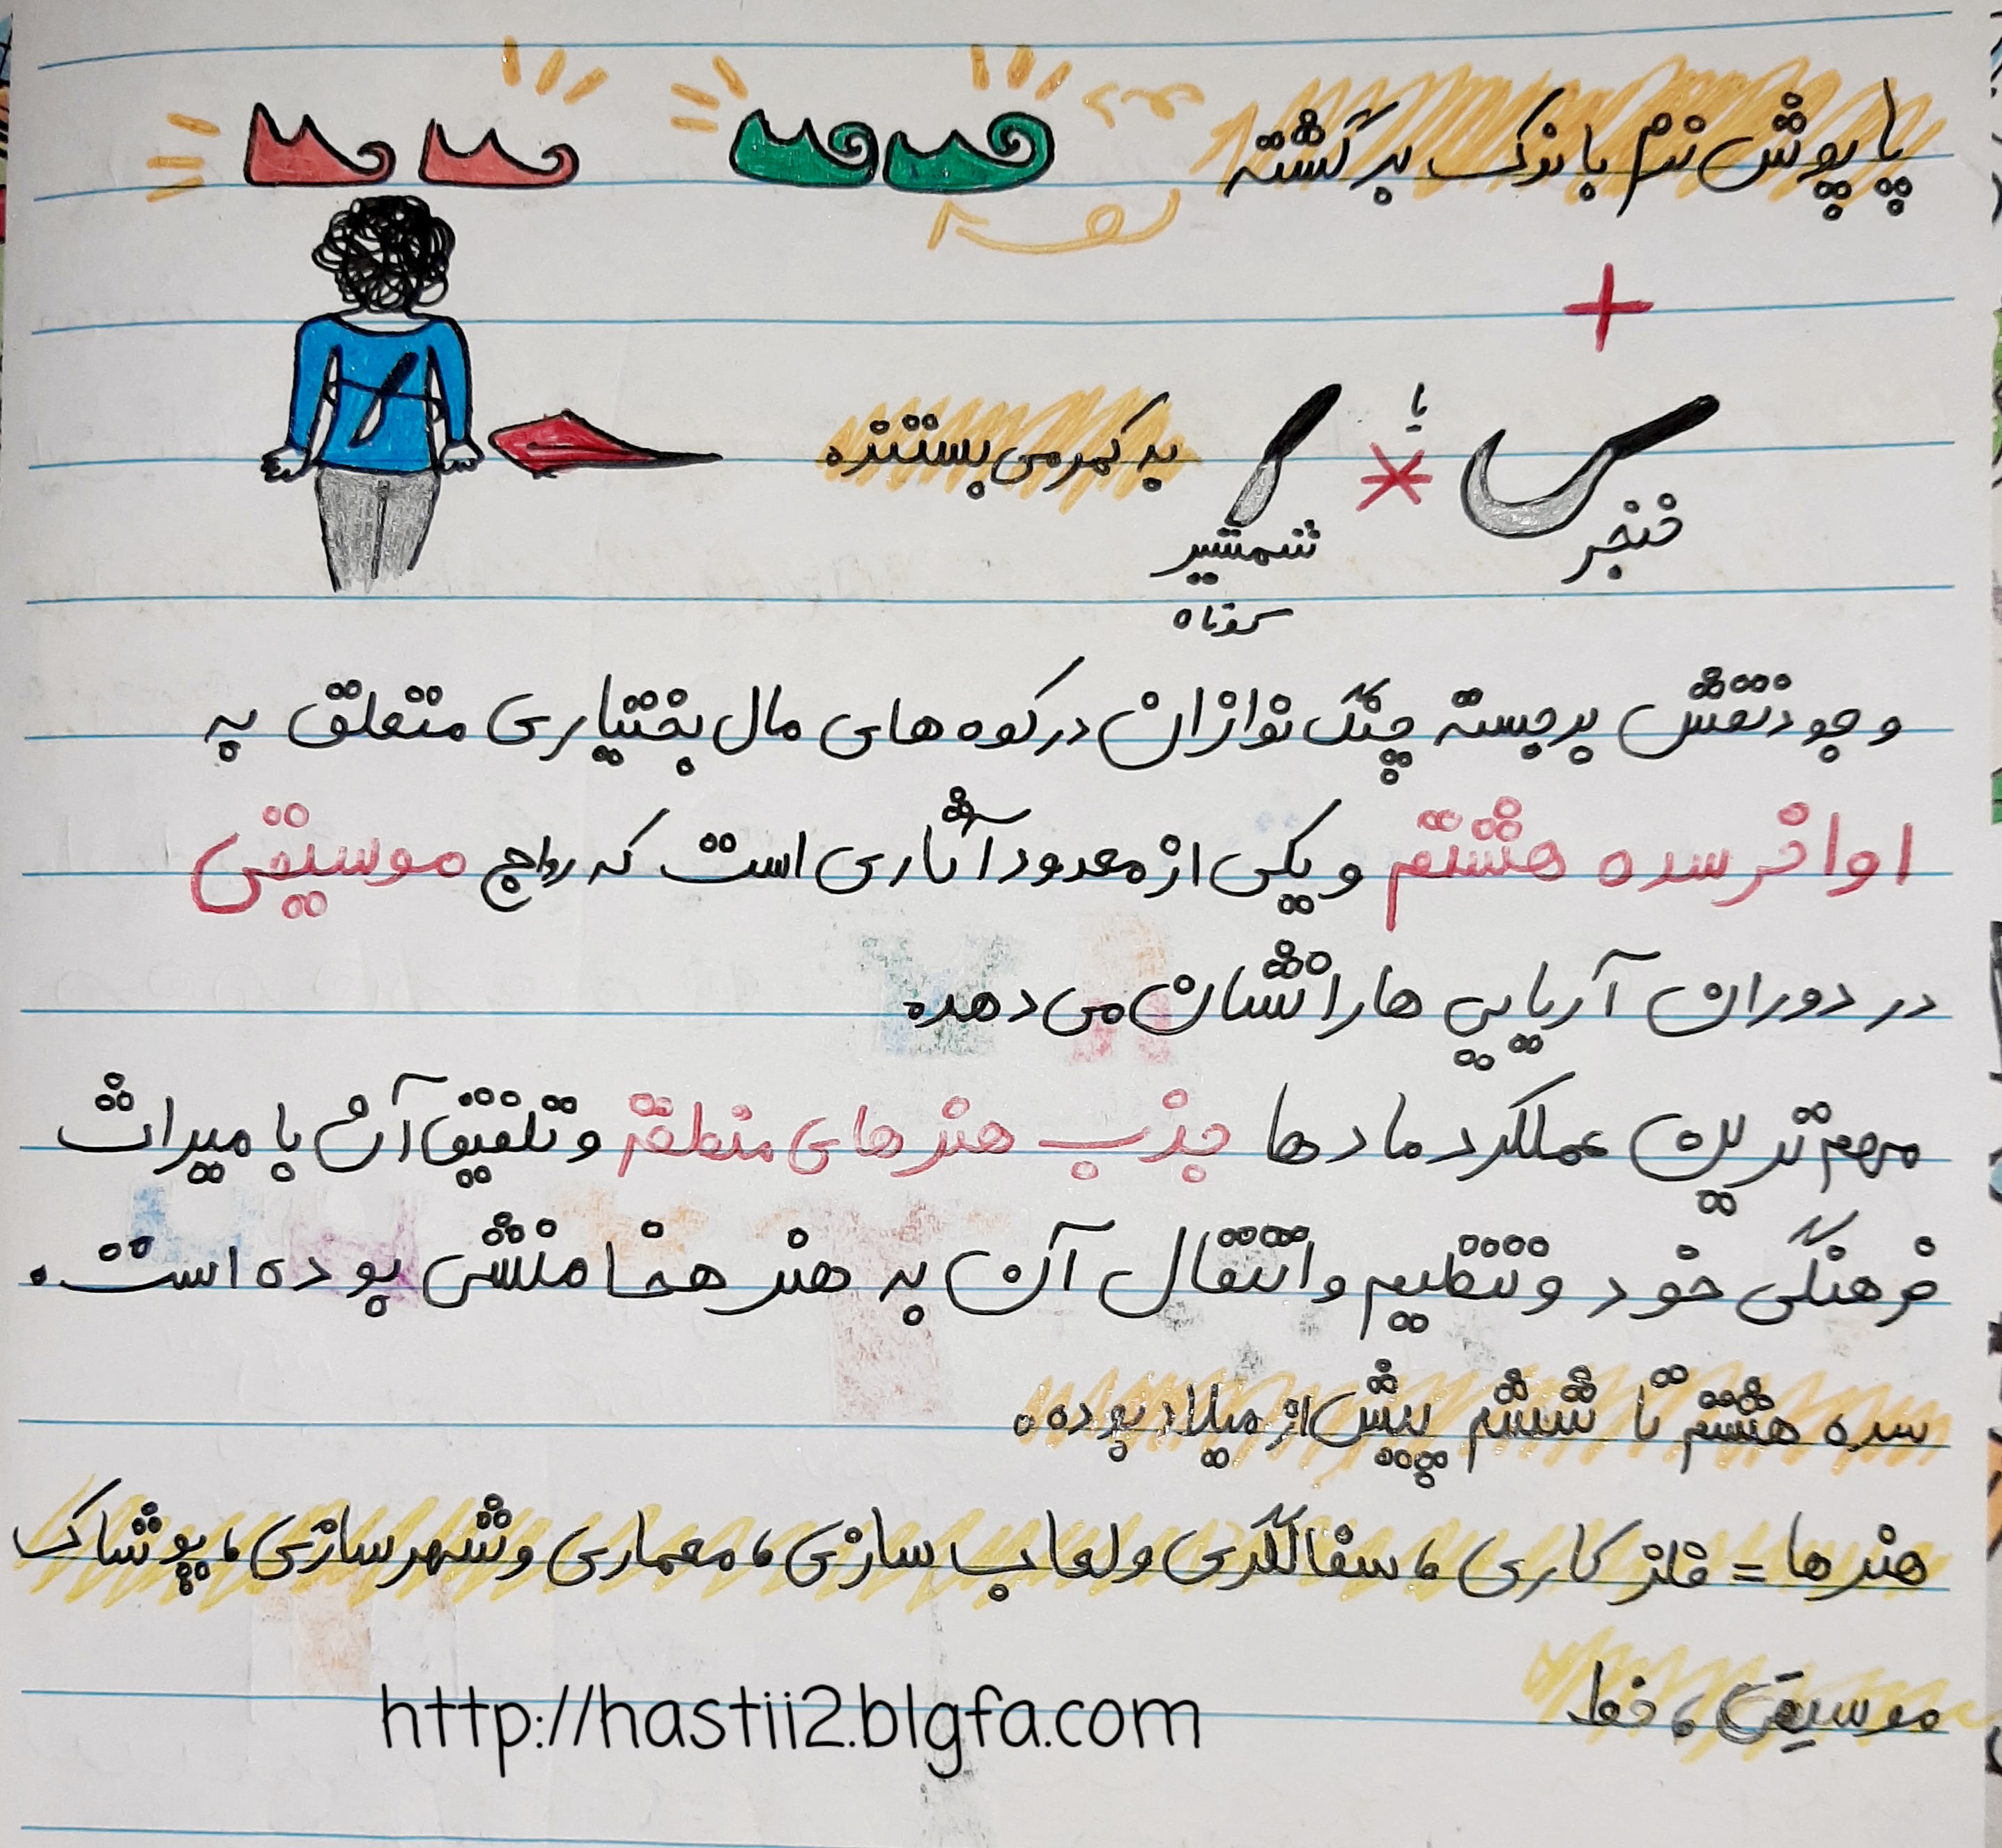 پاپوش نرم با نوک برگشته
+
خنجر
یا
شمشیر
کوتاه
به کمر می بستند.
وجود نقش برجسته چنگ نوازان در کوه های مال بختیاری متعلق به
اواخر سده هشتم و یکی از معدود آثاری است که رواج موسیقی
در دوران آریایی ها را نشان می دهد.
مهم ترین عملکرد مادها جذب هنرهای منطقه و تلفیق آن با میراث
فرهنگی خود و تنظیم و انتقال آن به هنر هخامنشی بوده است.
سده هشتم تا ششم پیش از میلاد بوده.
هنرها = فلزکاری، سفالگری و لعاب سازی، معماری و شهرسازی، پوشاک
موسیقی، خط
http://hastii2.blgfa.com